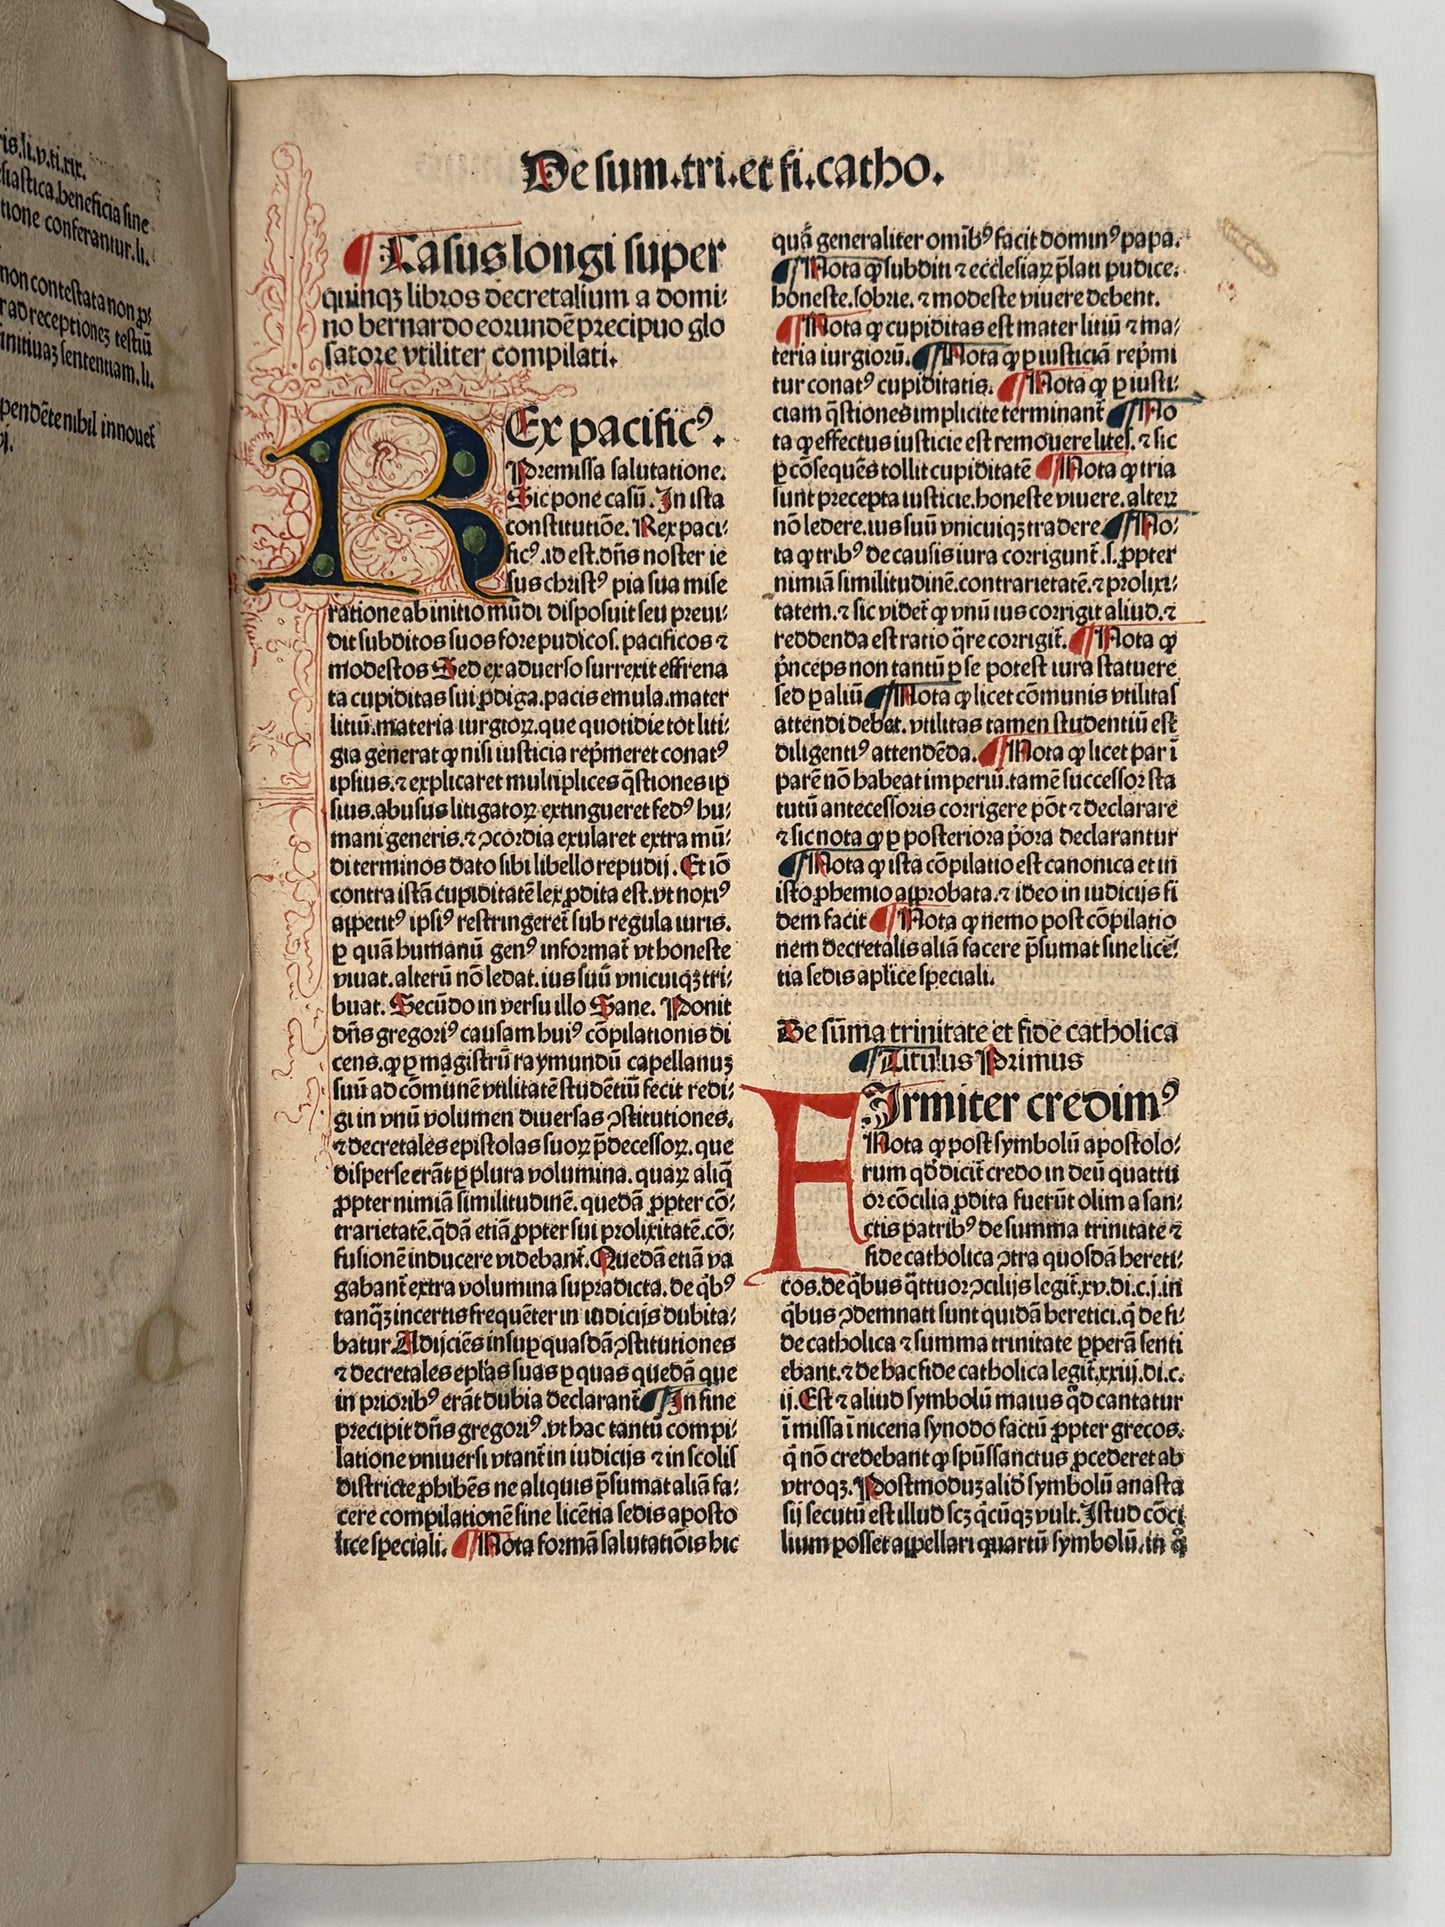 ris.li.v.ti.xix.
siastica.beneficia sine
tione conferantur.li.
non contestata non ꝓ⸗
r ad receptionez testiū
initiuaz sententiam.li.
pendēte nihil innouet᷑
De sum.tri.et fi.catho.
¶ Casus longi super
quinqꝫ libros decretalium a domi⸗
no bernardo eorundē precipuo glo
satore vtiliter compilati.
REx pacificꝰ.
Premissa salutatione.
Sic pone casū. In ista
constitutiōe. Rex paci⸗
ficꝰ .id est.dn̄s noster ie
sus christꝰ pia sua mise
ratione ab initio mūdi disposuit seu preui⸗
dit subditos suos fore pudicos. pacificos ⁊
modestos Sed ex aduerso surrexit effrena
ta cupiditas sui ꝓdiga.pacis emula.mater
litiū.materia iurgioꝝ.que quotidie tot liti⸗
gia generat ꝙ nisi iusticia rep̄meret conatꝰ
ipsius.⁊ explicaret multiplices q̄stiones ip
sius.abusus litigatoꝝ extingueret fedꝰ hu⸗
mani generis.⁊ ↄcordia exularet extra mū⸗
di terminos dato sibi libello repudij. Et iō
contra istā cupiditatē lex ꝓdita est.vt noxiꝰ
appetitꝰ ipsiꝰ restringeret᷑ sub regula iuris.
ꝑ quā humanū genꝰ informat᷑ vt honeste
viuat.alterū nō ledat.ius suū vnicuiqꝫ tri⸗
buat. Secūdo in versu illo Sane. Ponit
dn̄s gregoriꝰ causam huiꝰ cōpilationis di
cens.ꝙ ꝑ magistrū raymundū capellanuꝫ
suū ad cōmunē vtilitatē studētiū fecit redi⸗
gi in vnū volumen diuersas ↄstitutiones.
⁊ decretales epistolas suoꝝ p̄decessoꝝ. que
disperse erāt ꝑ plura volumina. quaꝝ aliq̄
ꝓpter nimiā similitudinē. quedā ꝓpter cō⸗
trarietatē.q̄dā etiā ꝓpter sui prolixitatē.cō⸗
fusionē inducere videbant᷑. Quedā etiā va
gabant᷑ extra volumina supradicta. de q̄bꝰ
tanqꝫ incertis frequēter in iudicijs dubita⸗
batur. Adijciēs insuꝑ quasdā ↄstitutiones
⁊ decretales ep̄las suas ꝑ quas quedā que
in prioribꝰ erāt dubia declarant᷑ ¶ In fine
precipit dn̄s gregoriꝰ.vt hac tantū compi⸗
latione vniuersi vtant᷑ in iudicijs ⁊ in scolis
districte ꝓhibēs ne aliquis p̄sumat aliā fa⸗
cere compilationē sine licētia sedis aposto
lice speciali. ¶ Nota formā salutatiōis hic
quā generaliter omībꝰ facit dominꝰ papa.
¶ Nota ꝙ subditi ⁊ ecclesiaꝝ p̄lati pudice.
honeste.sobrie. ⁊ modeste viuere debent.
¶ Nota ꝙ cupiditas est mater litiū ⁊ ma⸗
teria iurgiorū. ¶ Nota ꝙ ꝑ iusticiā rep̄mi
tur conatꝰ cupiditatis. ¶ Nota ꝙ ꝑ iusti⸗
ciam q̄stiones implicite terminant᷑ ¶ No
ta ꝙ effectus iusticie est remouere lites. ⁊ sic
ꝑ cōsequēs tollit cupiditatē ¶ Nota ꝙ tria
sunt precepta iusticie.honeste viuere. alteꝝ
nō ledere.ius suū vnicuiqꝫ tradere. ¶ No⸗
ta ꝙ tribꝰ de causis iura corrigunt᷑.s.ꝓpter
nimiā similitudinē.contrarietatē.⁊ prolixi⸗
tatem.⁊ sic videt᷑ ꝙ vnū ius corrigit aliud.⁊
reddenda est ratio q̄re corrigit᷑. ¶ Nota ꝙ
p̄nceps non tantū ꝑ se potest iura statuere
sed ꝑ aliū ¶ Nota ꝙ licet cōmunis vtilitas
attendi debet. vtilitas tamen studentiū est
diligentiꝰ attendēda. ¶ Nota ꝙ licet par ī
parē nō habeat imperiū.tamē successor sta
tutū antecessoris corrigere pōt ⁊ declarare
⁊ sic nota ꝙ ꝑ posteriora p̄ora declarantur
¶ Nota ꝙ ista cōpilatio est canonica et in
isto ꝓhemio approbata.⁊ ideo in iudicijs fi
dem facit ¶ Nota ꝙ nemo post cōpilatio
nem decretalis aliā facere p̄sumat sine licē⸗
tia sedis aplice speciali.
De sūma trinitate et fide catholica
¶ Titulus Primus
FIrmiter credimꝰ
Nota ꝙ post symbolū apostolo⸗
rum qd̄ dicit᷑ credo in deū quattu
or cōcilia ꝓdita fuerūt olim a san⸗
ctis patribꝰ de summa trinitate ⁊
fide catholica ↄtra quosdā hereti⸗
cos.de q̄bus q̄ttuor ↄcilijs legit᷑.xv.di.c.j.in
q̄bus ↄdemnati sunt quidā heretici.q̄ de fi⸗
de catholica ⁊ summa trinitate ꝑperā senti
ebant.⁊ de hac fide catholica legit᷑.xxiij.di.c.
ij. Est ⁊ aliud symbolū maius qd̄ cantatur
ī missa ī nicena synodo factū ꝓpter grecos.
q̄ nō credebant ꝙ spūssanctus ꝓcederet ab
vtroqꝫ. Postmoduꝫ aliḋ symbolū anasta
sij secutū est illud scꝫ q̄cūqꝫ vult. Istud cōci
lium posset appellari quartū symbolū.in q̊